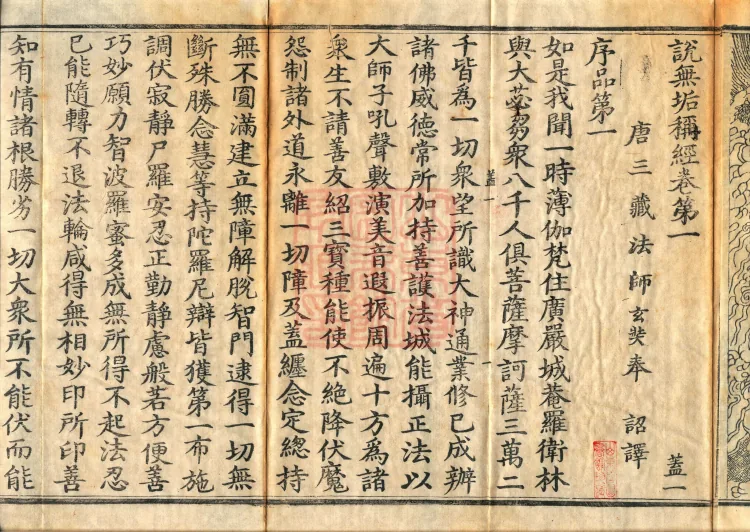 說無垢稱經卷第一　蓋一
唐三藏法師玄奘奉　詔譯
序品第一
如是我聞一時薄伽梵住廣嚴城菴羅衛林
與大苾芻衆八千人俱菩薩摩訶薩三萬二
蓋一
千皆爲一切衆望所識大神通業修已成辦
諸佛威德常所加持善護法城能攝正法以
大師子吼聲敷演美音遐振周遍十方爲諸
衆生不請善友紹三寶種能使不絶降伏魔
怨制諸外道永離一切障及蓋纏念定總持
無不圓滿建立無障解脫智門逮得一切無
斷殊勝念慧等持陀羅尼辯皆獲第一布施
調伏寂靜尸羅安忍正勤靜慮般若方便善
巧妙願力智波羅蜜多成無所得不起法忍
已能隨轉不退法輪咸得無相妙印所印善
知有情諸根勝劣一切大衆所不能伏而能